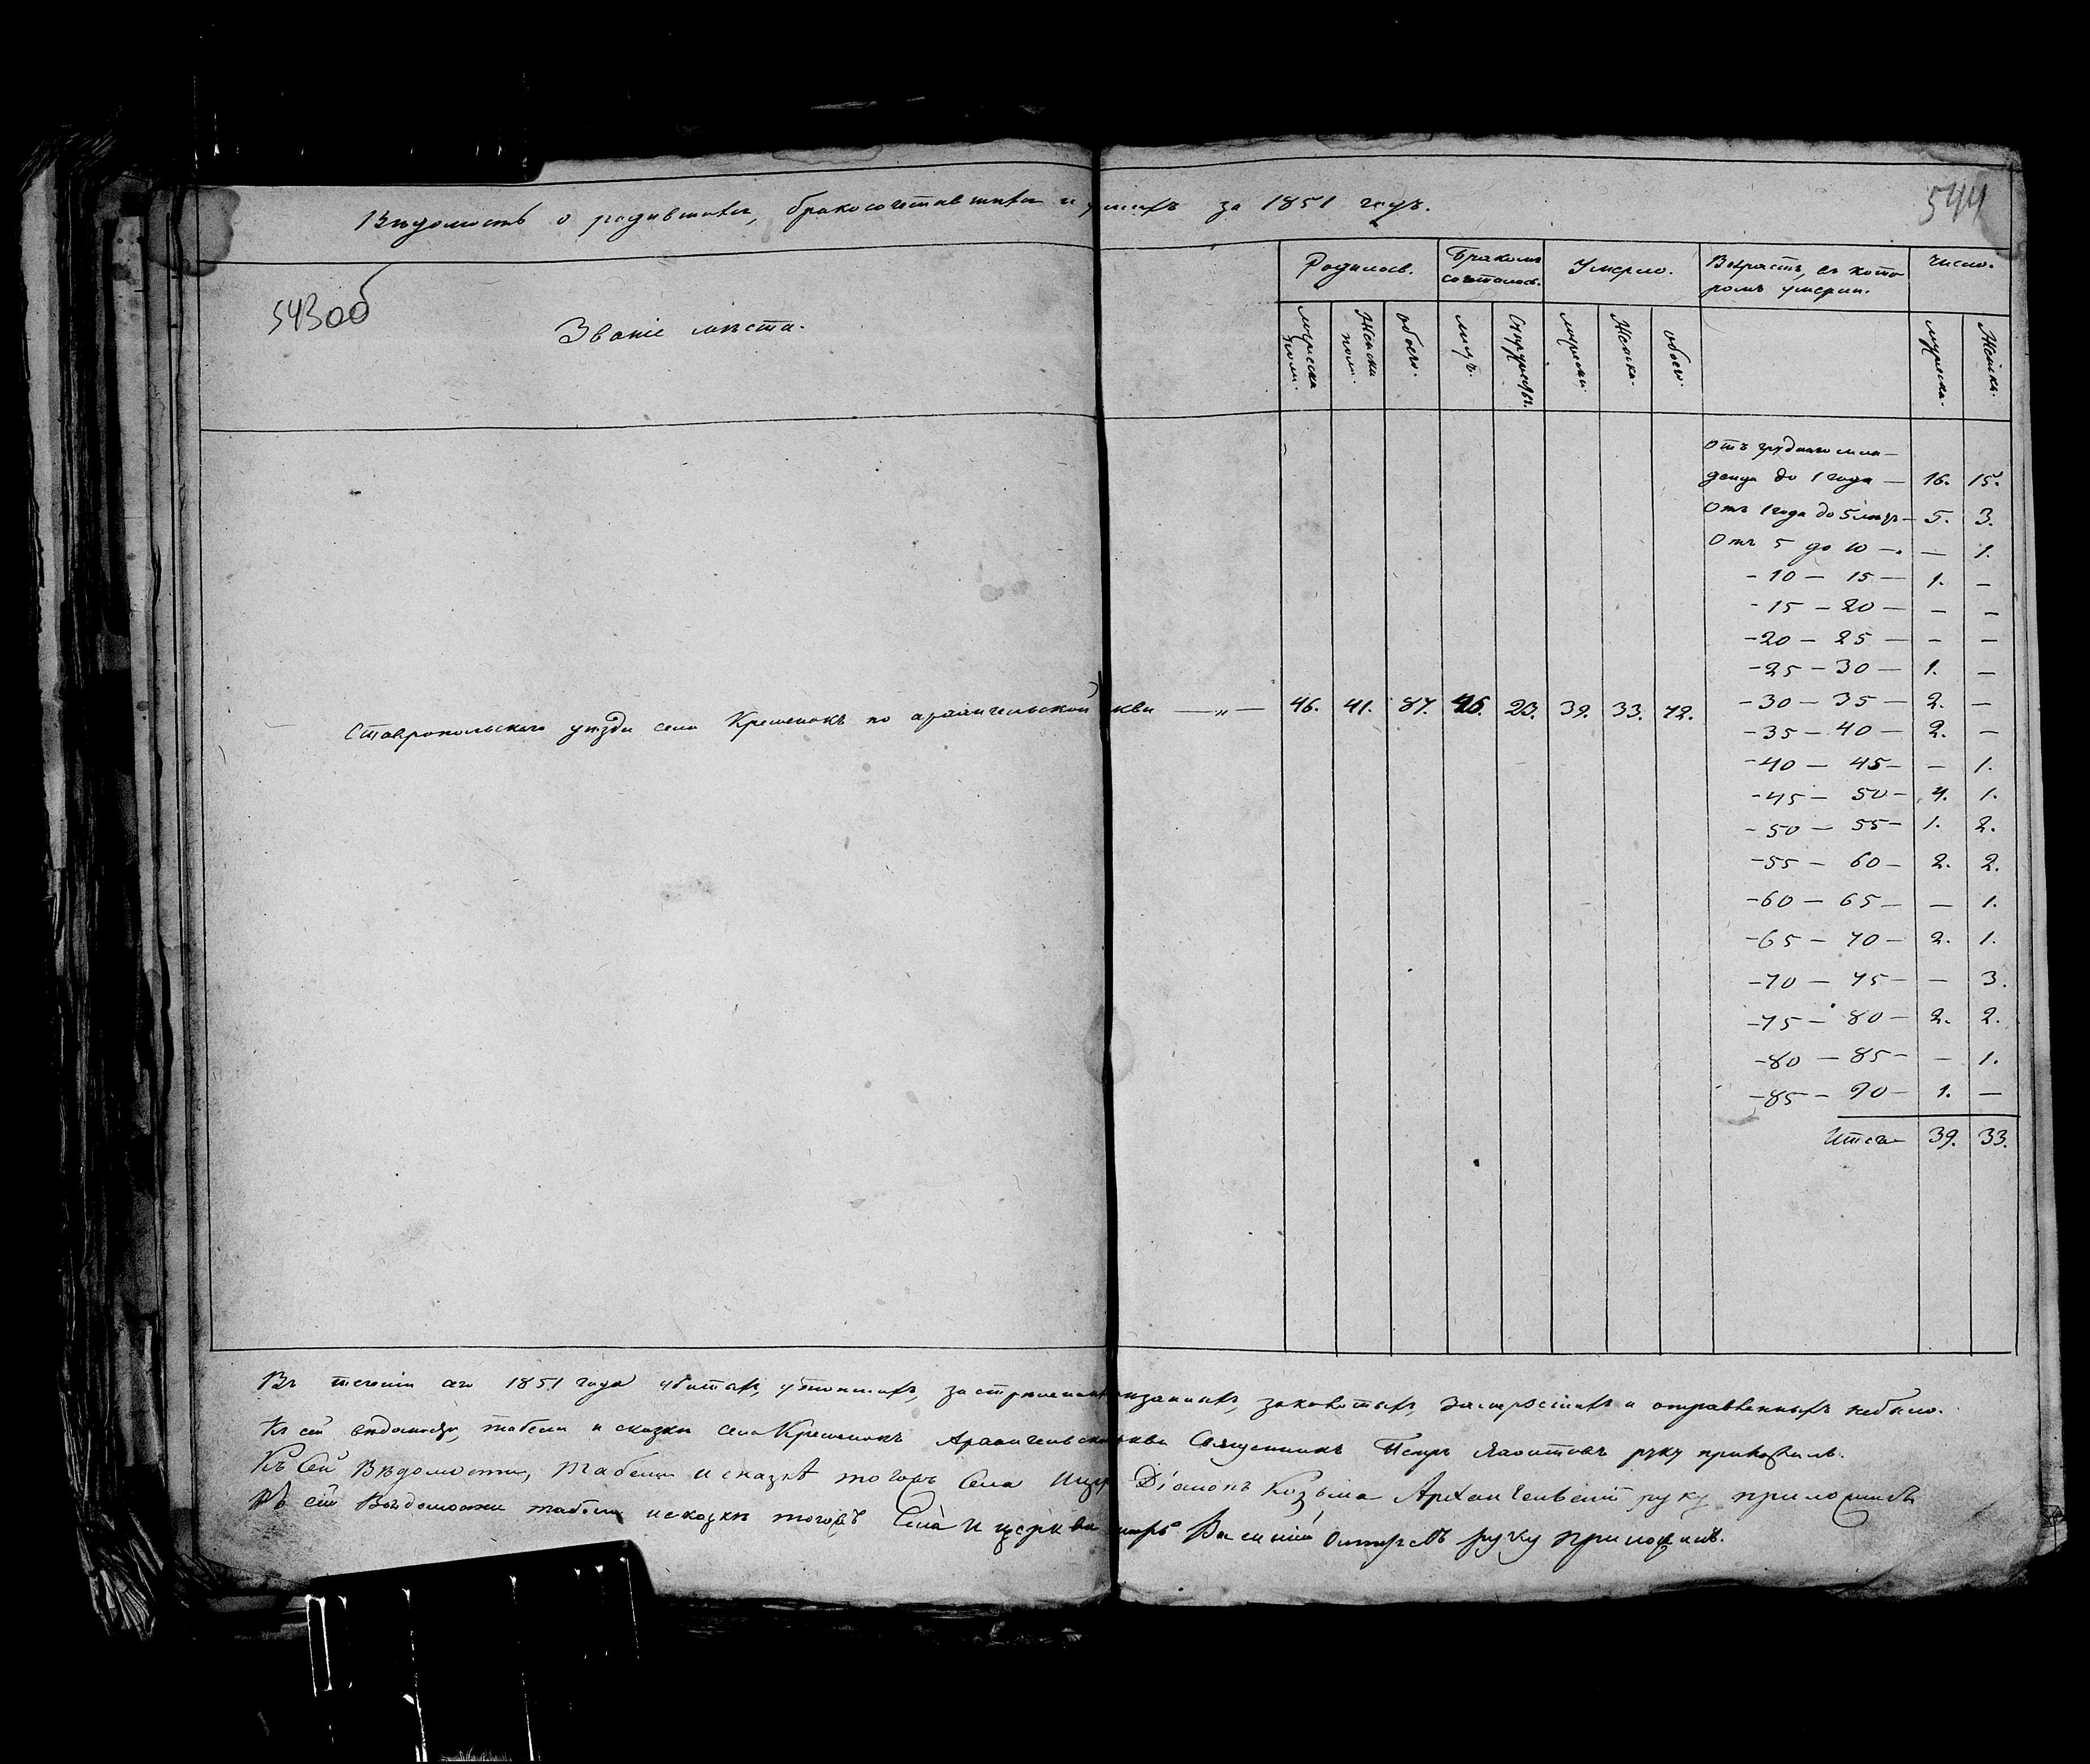 Вѣдомость о родившихся, бракосочетавшихся и умерш. за 1851 годъ.
544
543об
Званіе мѣста.
Родилось.
Бракомъ сочеталось.
Умерло.
Возрастъ, въ котором умерли.
Число.
мужеска пола.
Женска пола.
обоего.
лицъ.
Супружествъ.
мужеска.
Женска.
обоего.
мужеска.
Женска.
Ставропольскаго уѣзда села Кременокъ по архангельской цкви — „ — 46. 41. 87. 46. 23. 39. 33. 72.
Отъ груднаго мла-
денца до 1 года — 16. 15.
Отъ 1 года до 5 лѣтъ — 5. 3.
Отъ 5 до 10 — — 1.
- 10 — 15 — 1. —
- 15 — 20 — — —
- 20 — 25 — — —
- 25 — 30 — 1. —
- 30 — 35 — 2. —
- 35 — 40 — 2. —
- 40 — 45 — — 1.
- 45 — 50 — 4. 1.
- 50 — 55 — 1. 2.
- 55 — 60 — 2. 2.
- 60 — 65 — — 1.
- 65 — 70 — 2. 1.
- 70 — 75 — — 3.
- 75 — 80 — 2. 2.
- 80 — 85 — — 1.
- 85 — 90 — 1. —
Итого 39. 33.
Въ теченіи сего 1851 года убитыхъ, утопшихъ, и отравленныхъ небыло.
Къ сей вѣдомости, табели и сказки села Кременокъ Архангельской цкви Священникъ Петръ руку приложилъ.
Къ Сей Вѣдомости, Табели и сказкѣ тогожъ Села Діаконъ Козьма Архангельскій руку приложилъ
Къ сей Вѣдомости табели и сказкѣ тогожъ Села и церкви Василій руку приложилъ.